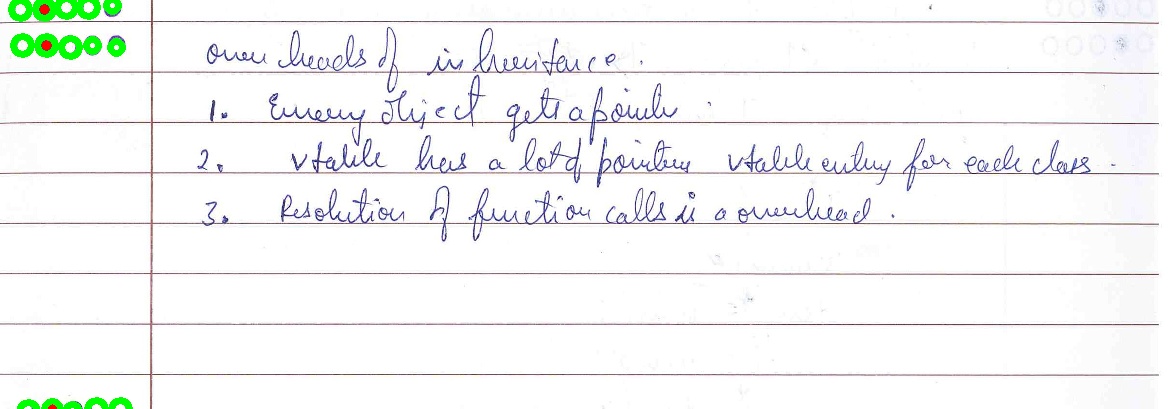 over heads of inheritance.
1. Every object gets a pointer
2. vtable has a lot of pointers vtable entry for each class.
3. Resolution of function calls is a overhead.